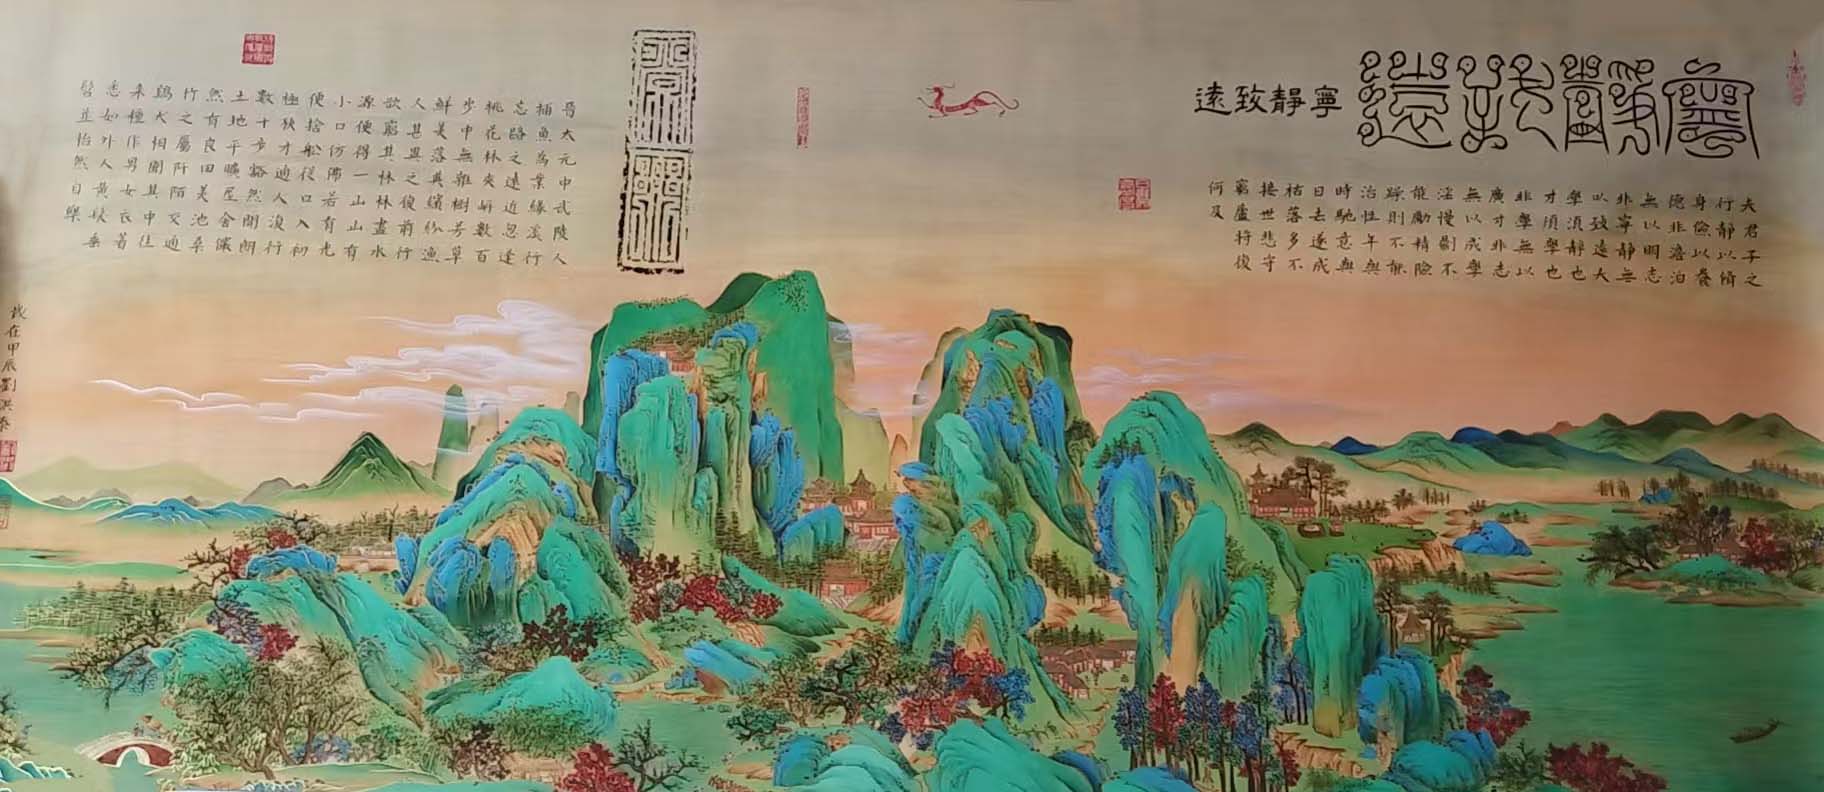 寧靜致遠
寧靜致遠
夫君子之
行靜以脩
身儉以養
德非澹泊
無以明志
非寧靜無
以致遠夫
學須靜也
才須學也
非學無以
廣才非志
無以成學
淫慢則不
能勵精險
躁則不能
治性年與
時馳意與
日去遂成
枯落多不
接世悲守
窮廬將復
何及
晉太元中武陵人
捕魚為業緣溪行
忘路之遠近忽逢
桃花林夾岸數百
步中無雜樹芳草
鮮美落英繽紛漁
人甚異之復前行
欲窮其林林盡水
源便得一山山有
小口仿佛若有光
便捨船從口入初
極狹才通人復行
數十步豁然開朗
土地平曠屋舍儼
然有良田美池桑
竹之屬阡陌交通
鷄犬相聞其中往
來種作男女衣著
悉如外人黃髮垂
髫並怡然自樂
歲在甲辰劉洪泰